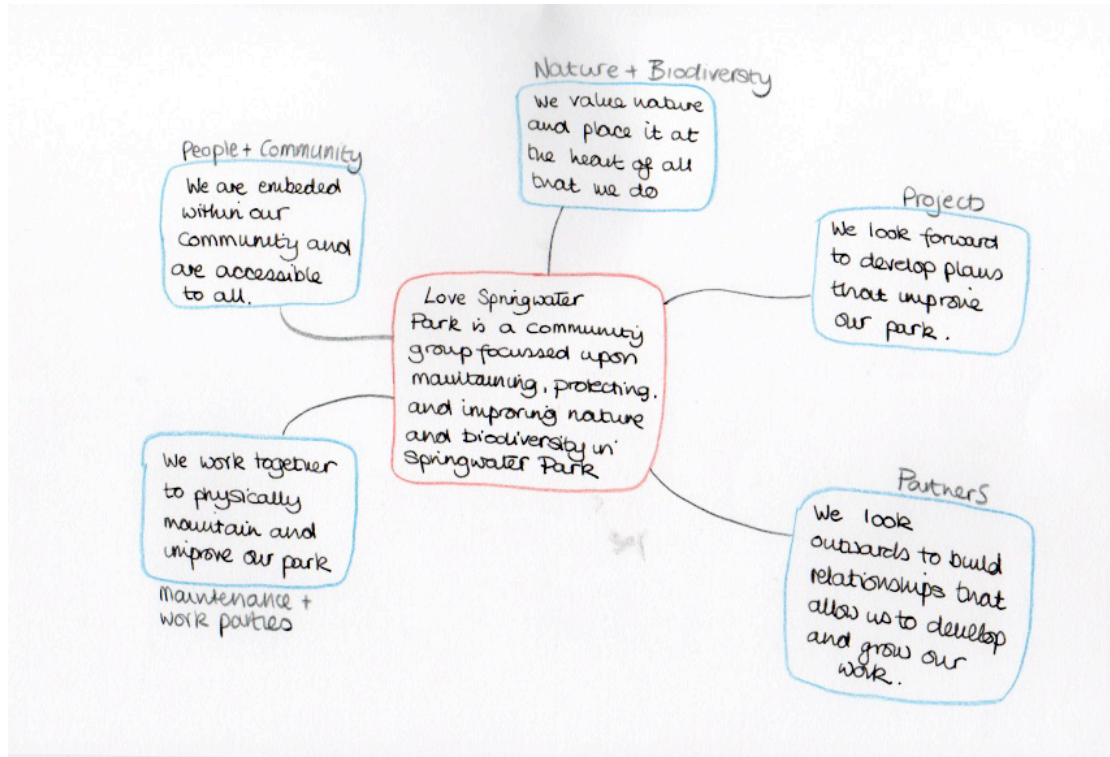 Nature + Biodiversty
We value nature
and place it at
the heart of all
that we do
People + Community
We are embeded
within our
community and
are accessible
to all.
Projects
We look forward
to develop plans
that improve
our park.
Love Springwater
Park is a community
group focussed upon
maintaining, protecting,
and improving nature
and biodiversity in
Springwater Park
We work together
to physically
maintain and
improve our park
maintenance +
work parties
Partners
We look
outwards to build
relationships that
allow us to develop
and grow our
work.